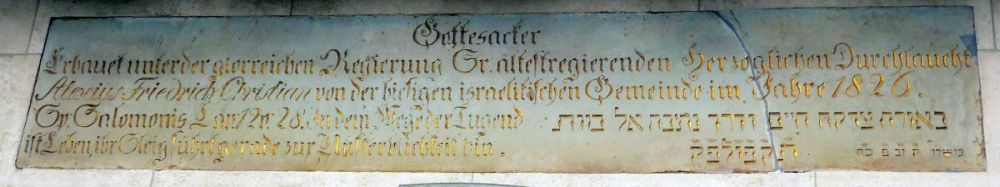 Gottesacker
Erbauet unter der glorreichen Regierung Sr. ältestregierenden Herzoglichen Durchlaucht
Alexius Friedrich Christian von der hiesigen israelitischen Gemeinde im Jahre 1826.
Sp. Salomonis Cap. 12 v. 28. In dem Wege der Tugend באורח צדקה חיים ודרך נתיבה אל מות
ist Leben, ihr Steig führt gerade zur Unsterblichkeit hin. תקפולבק משלי